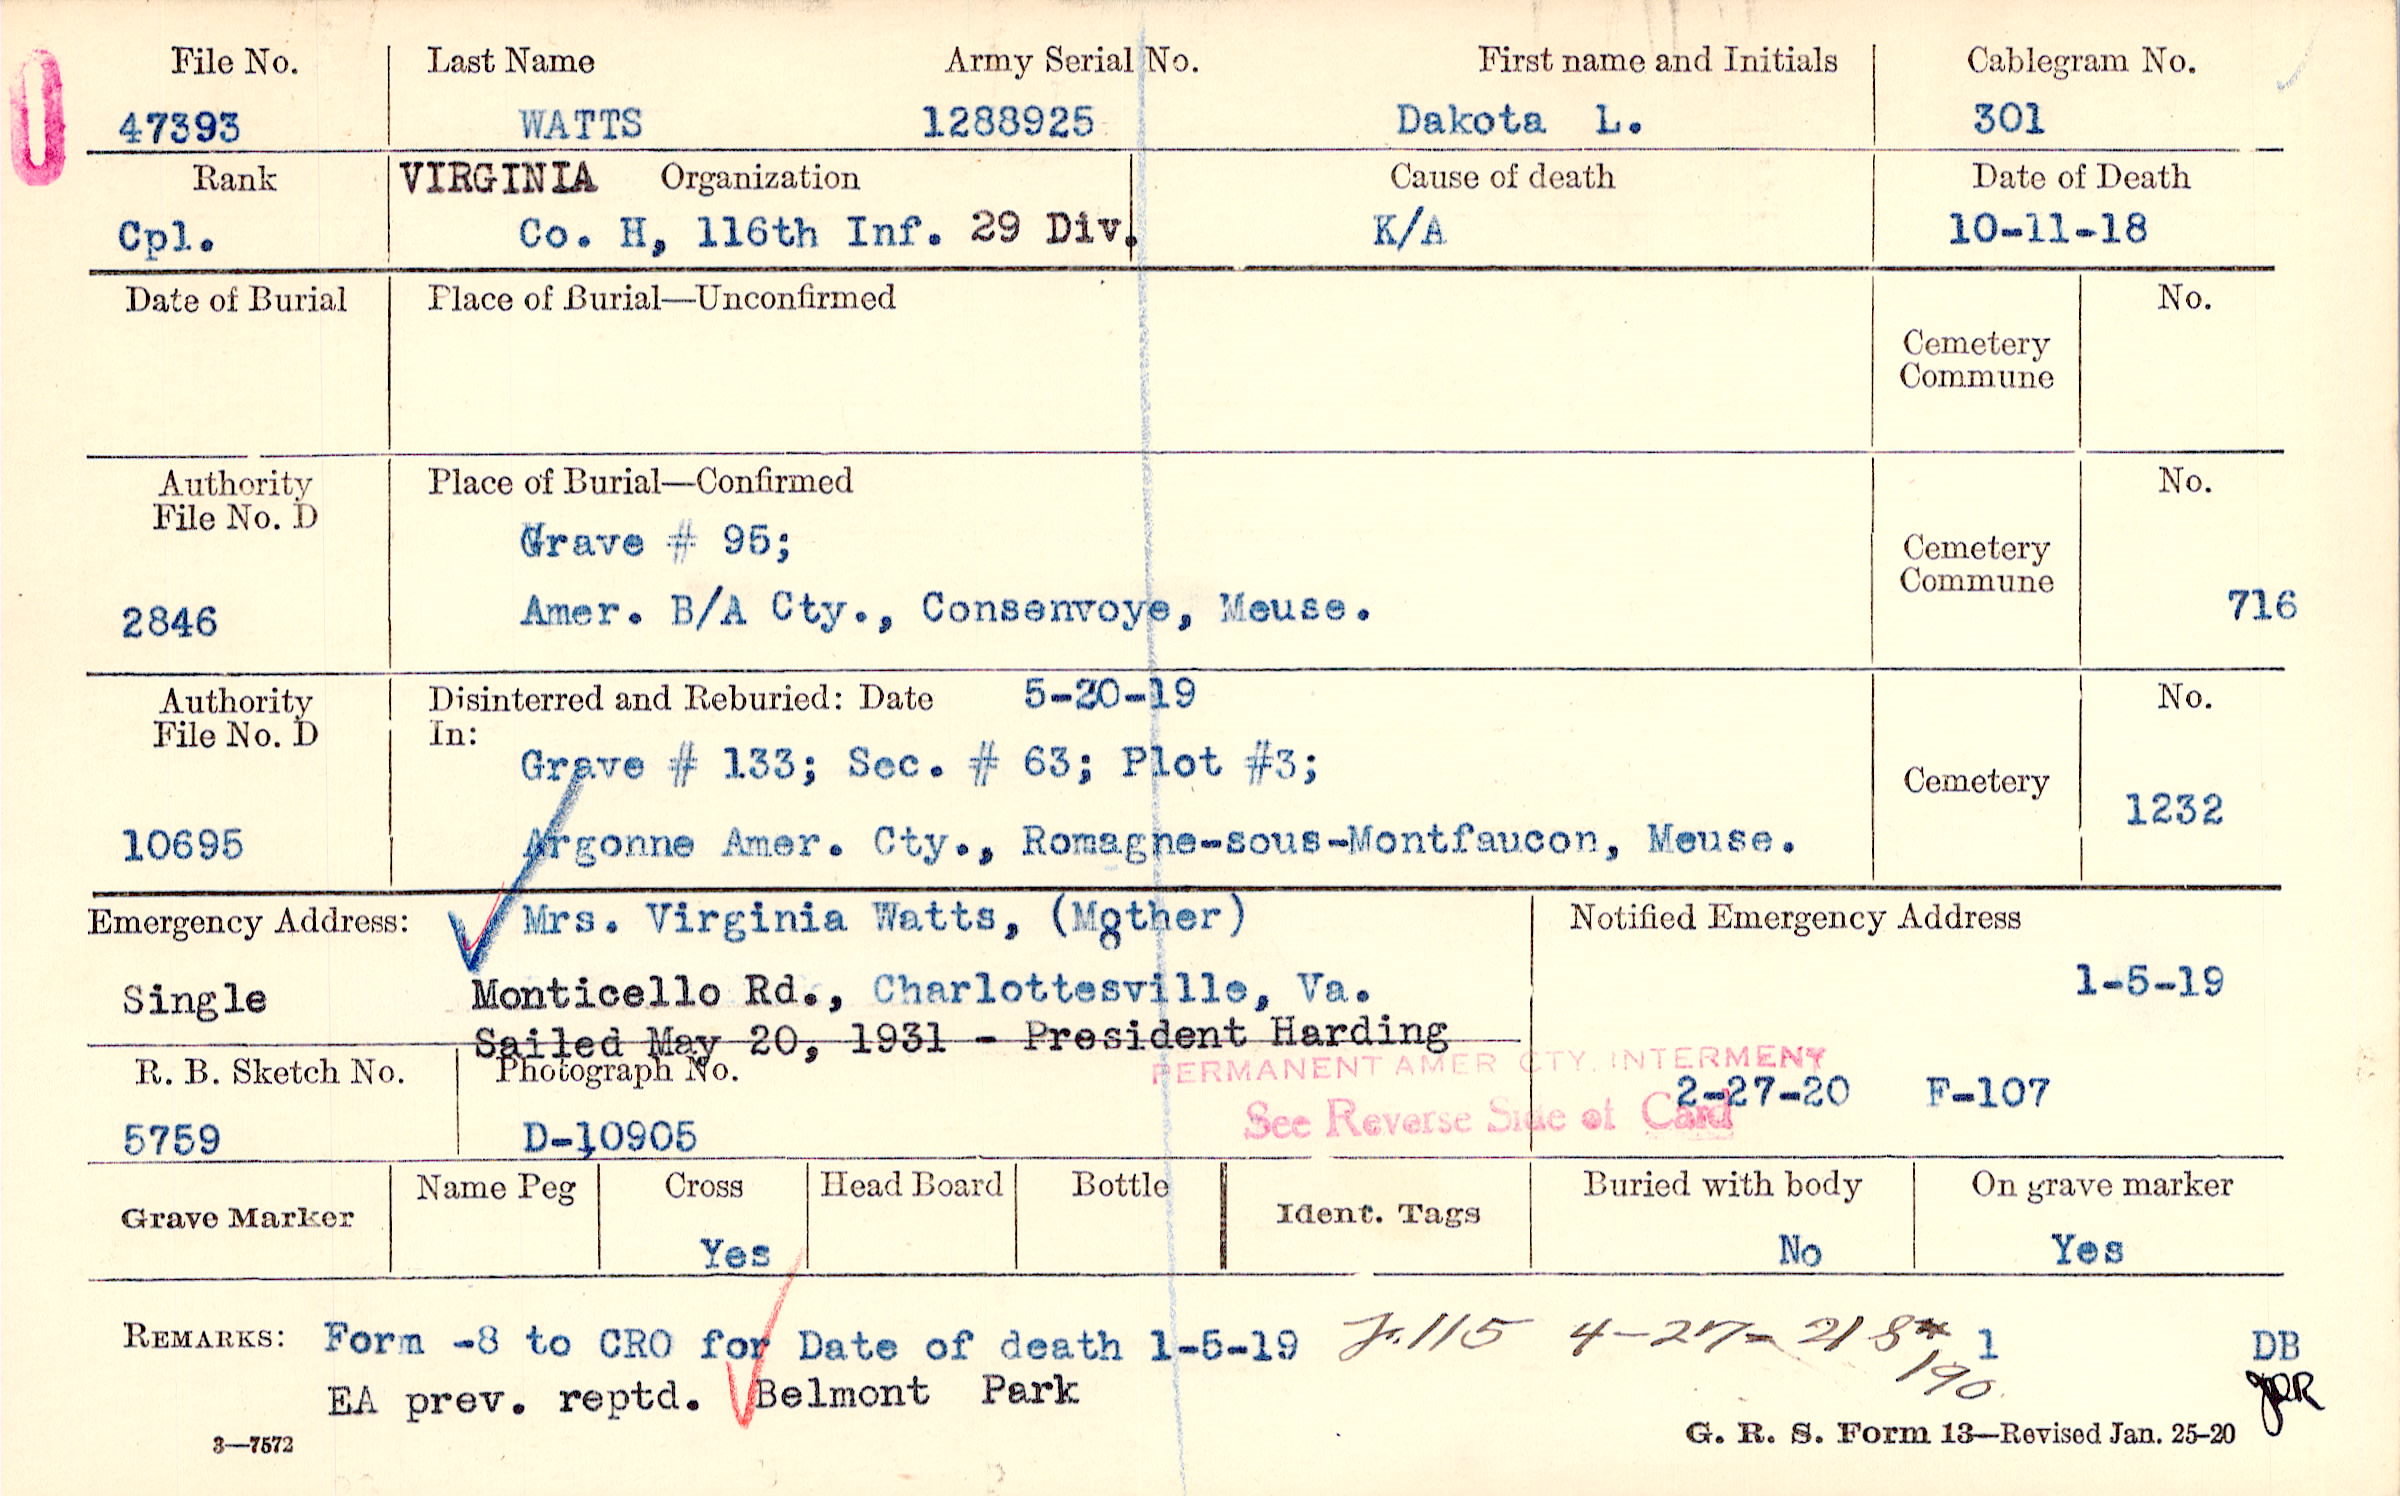 File No. Last Name Army Serial No. First name and Initials Cablegram No.
47393 WATTS 1288925 Dakota L. 301
Rank VIRGINIA Organization Cause of death Date of Death
Cpl. Co. H, 116th Inf. 29 Div. K/A 10-11-18
Date of Burial Place of Burial—Unconfirmed No.
Cemetery
Commune
Authority Place of Burial—Confirmed No.
File No. D
Grave # 95;
Cemetery
Commune
2846 Amer. B/A Cty., Consenvoye, Meuse. 716
Authority Disinterred and Reburied: Date 5-20-19 No.
File No. D In:
Grave # 133; Sec. # 63; Plot #3;
Cemetery
1232
10695 Argonne Amer. Cty., Romagne-sous-Montfaucon, Meuse.
Emergency Address: Mrs. Virginia Watts, (Mother) Notified Emergency Address
Single Monticello Rd., Charlottesville, Va. 1-5-19
Sailed May 20, 1931 - President Harding
R. B. Sketch No. Photograph No. PERMANENT AMER CTY. INTERMENT
2-27-20 F-107
See Reverse Side of Card
5759 D-10905
Grave Marker Name Peg Cross Head Board Bottle Ident. Tags Buried with body On grave marker
Yes No Yes
REMARKS: Form -8 to CRO for Date of death 1-5-19 115 4-27-21 8* 1 DB
190
EA prev. reptd. Belmont Park JRR
3—7572 G. R. S. Form 13—Revised Jan. 25-20